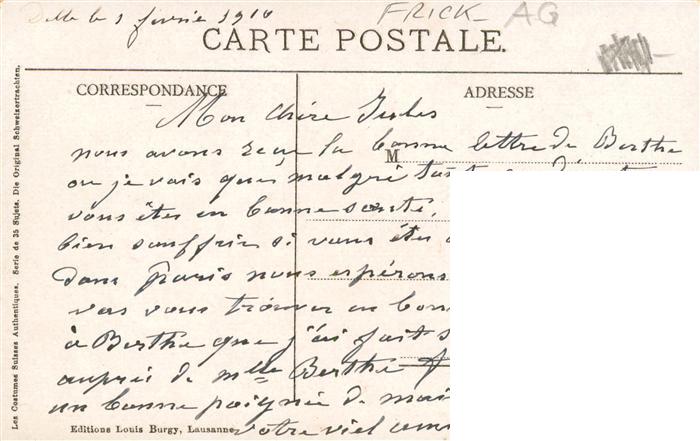 Delle le 1 fevrie 1910
FRICK - AG
CARTE POSTALE.
CORRESPONDANCE
ADRESSE
M
Mon chère Jules
nous avons recu la bonne lettre de Berthe
ou je vais que malgré tout
vous êtes en bonne santé,
bien souffrir si vous êtes
dans Paris nous espérons
vous trouver en bon
à Berthe que j'ai fait
auprès de mlle Berthe
un bonne poignée de mai
votre viel ami
Editions Louis Burgy, Lausanne
Les Costumes Suisses Authentiques. Serie de 35 Sujets. Die Original Schweizertrachten.